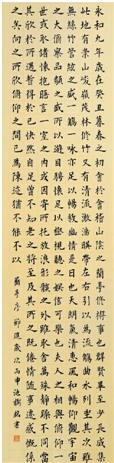 永和九年歲在癸丑暮春之初會于會稽山陰之蘭亭修禊事也群賢畢至少長咸集
此地有崇山峻領茂林修竹又有清流激湍暎帶左右引以為流觴曲水列坐其次雖
無絲竹管弦之盛一觴一詠亦足以暢敘幽情是日也天朗氣清惠風和暢仰觀宇宙
之大俯察品類之盛所以遊目騁懷足以極視聽之娛信可樂也夫人之相與俯仰一
世或取諸懷抱悟言一室之內或因寄所託放浪形骸之外雖趣舍萬殊靜躁不同當
其欣於所遇暫得於己快然自足不知老之將至及其所之既倦情隨事遷感慨係
之矣向之所欣俯仰之間已為陳迹猶不能不以
蘭亭序節選歲次丙申